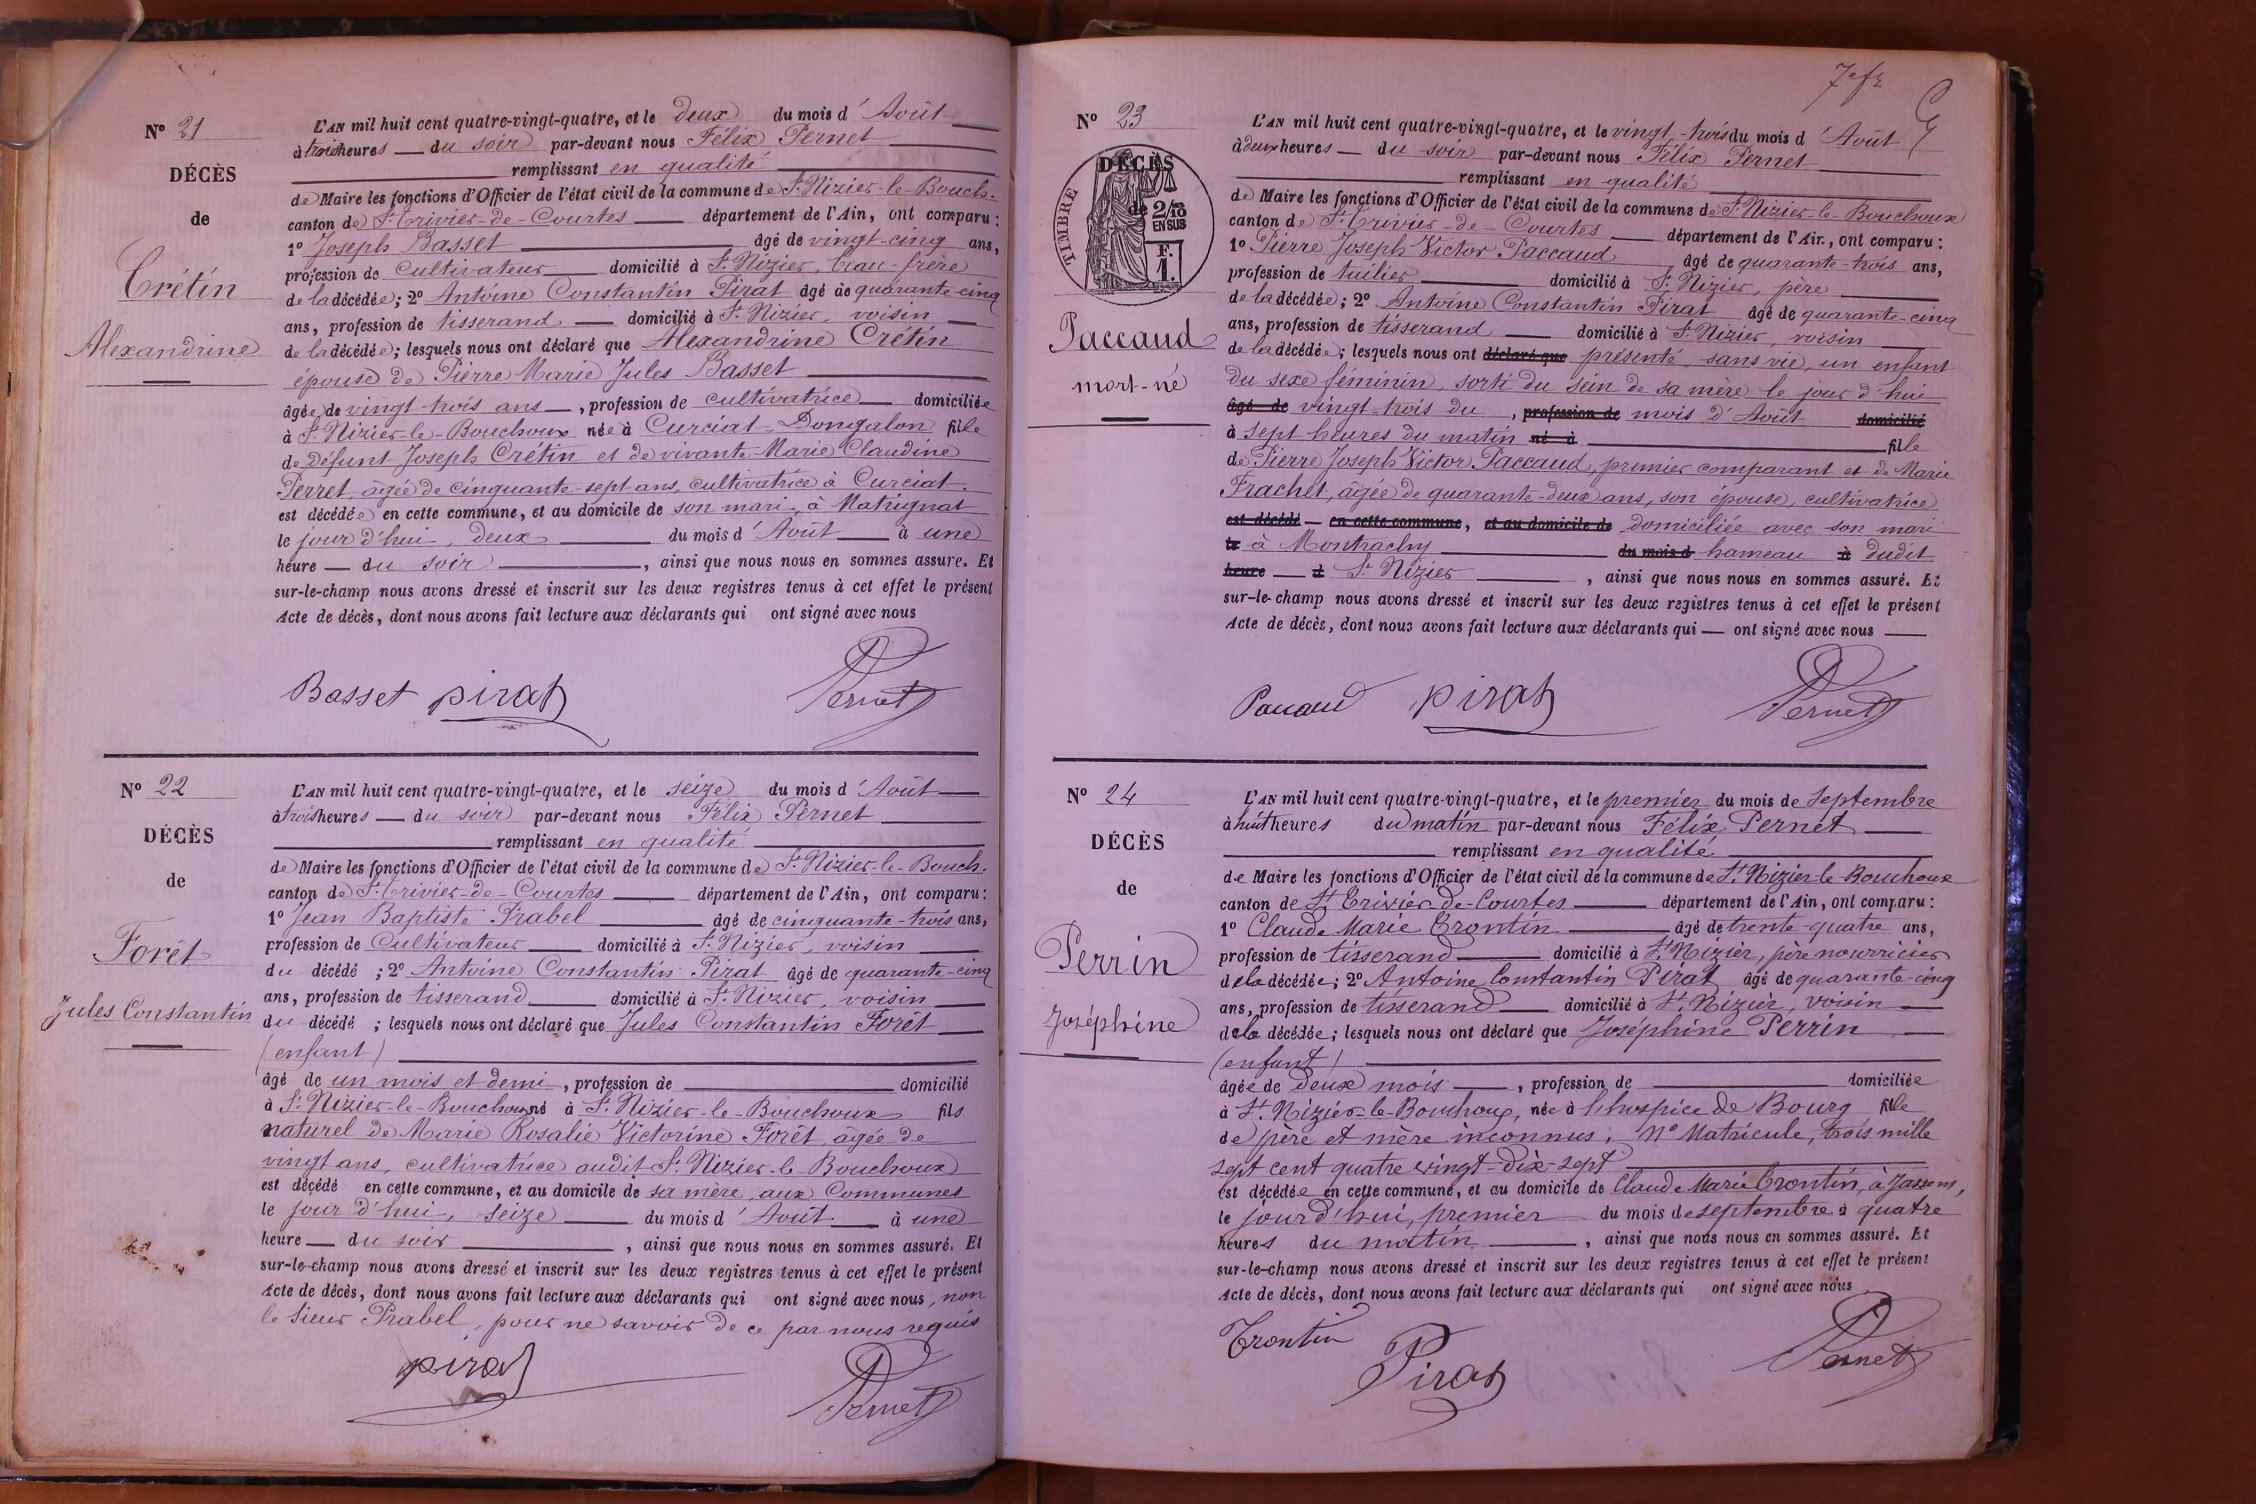 N° 21
DÉCÈS
de
Crétin
Alexandrine
L'AN mil huit cent quatre-vingt-quatre, et le deux du mois d'Août
à trois heures du soir par-devant nous Félix Pernet
remplissant en qualité
de Maire les fonctions d'Officier de l'état civil de la commune de St Nizier-le-Bouch.
canton de St Trivier-de-Courtes département de l'Ain, ont comparu :
1° Joseph Basset âgé de vingt-cinq ans,
profession de Cultivateur domicilié à St Nizier, beau-frère
de la décédée ; 2° Antoine Constantin Pirat âgé de quarante-cinq
ans, profession de tisserand domicilié à St Nizier, voisin
de la décédée ; lesquels nous ont déclaré que Alexandrine Crétin
épouse de Pierre Marie Jules Basset
âgée de vingt-trois ans, profession de cultivatrice domiciliée
à St Nizier-le-Bouchoux née à Curciat-Dongalon fille
de Défunt Joseph Crétin et de vivante Marie Claudine
Perret, âgée de cinquante-sept ans, cultivatrice à Curciat.
est décédée en cette commune, et au domicile de son mari, à Matrignat
le jour d'hui, deux du mois d'Août à une
heure du soir, ainsi que nous nous en sommes assuré. Et
sur-le-champ nous avons dressé et inscrit sur les deux registres tenus à cet effet le présent
Acte de décès, dont nous avons fait lecture aux déclarants qui ont signé avec nous
Basset pirat Pernet
N° 22
DÉCÈS
de
Forêt
Jules Constantin
L'AN mil huit cent quatre-vingt-quatre, et le seize du mois d'Août
à trois heures du soir par-devant nous Félix Pernet
remplissant en qualité
de Maire les fonctions d'Officier de l'état civil de la commune de St Nizier-le-Bouch.
canton de St Trivier-de-Courtes département de l'Ain, ont comparu :
1° Jean Baptiste Prabel âgé de cinquante-trois ans,
profession de Cultivateur domicilié à St Nizier, voisin
du décédé ; 2° Antoine Constantin Pirat âgé de quarante-cinq
ans, profession de tisserand domicilié à St Nizier, voisin
du décédé ; lesquels nous ont déclaré que Jules Constantin Forêt
(enfant)
âgé de un mois et demi, profession de domicilié
à St Nizier-le-Bouchoux né à St Nizier-le-Bouchoux fils
naturel de Marie Rosalie Victorine Forêt, âgée de
vingt ans, cultivatrice audit St Nizier-le-Bouchoux
est décédé en cette commune, et au domicile de sa mère, aux Communes
le jour d'hui, seize du mois d'Août à une
heure du soir, ainsi que nous nous en sommes assuré. Et
sur-le-champ nous avons dressé et inscrit sur les deux registres tenus à cet effet le présent
Acte de décès, dont nous avons fait lecture aux déclarants qui ont signé avec nous, non
le Sieur Prabel, pour ne savoir de ce par nous requis
pirat Pernet
7e
N° 23
DÉCÈS
de
TIMBRE
2/10
EN SUS
F.
1.
Paccaud
mort-né
L'AN mil huit cent quatre-vingt-quatre, et le vingt-trois du mois d'Août
à deux heures du soir par-devant nous Félix Pernet
remplissant en qualité
de Maire les fonctions d'Officier de l'état civil de la commune de St Nizier-le-Bouchoux
canton de St Trivier-de-Courtes département de l'Air., ont comparu :
1° Pierre Joseph Victor Paccaud âgé de quarante-trois ans,
profession de tuilier domicilié à St Nizier, père
de la décédée ; 2° Antoine Constantin Pirat âgé de quarante-cinq
ans, profession de tisserand domicilié à St Nizier, voisin
de la décédée ; lesquels nous ont déclaré que présenté sans vie, un enfant
du sexe féminin, sorti du sein de sa mère le jour d'hui
âgé de vingt-trois du, profession de mois d'Août domicilié
à sept heures du matin né à fille
de Pierre Joseph Victor Paccaud, premier comparant et de Marie
Frachet, âgée de quarante-deux ans, son épouse, cultivatrice
est décédé en cette commune, et au domicile de domiciliée avec son mari
le à Montrachy du mois d hameau à dudit
heure d St Nizier, ainsi que nous nous en sommes assuré. Et
sur-le-champ nous avons dressé et inscrit sur les deux registres tenus à cet effet le présent
Acte de décès, dont nous avons fait lecture aux déclarants qui ont signé avec nous
Paccaud pirat Pernet
N° 24
DÉCÈS
de
Perrin
Joséphine
L'AN mil huit cent quatre-vingt-quatre, et le premier du mois de Septembre
à huit heures du matin par-devant nous Félix Pernet
remplissant en qualité
de Maire les fonctions d'Officier de l'état civil de la commune de St Nizier-le-Bouchoux
canton de St Trivier-de-Courtes département de l'Ain, ont comparu :
1° Claude Marie Trontin âgé de trente-quatre ans,
profession de tisserand domicilié à St Nizier, père nourricier
de la décédée ; 2° Antoine Constantin Pirat âgé de quarante-cinq
ans, profession de tisserand domicilié à St Nizier, voisin
de la décédée ; lesquels nous ont déclaré que Joséphine Perrin
(enfant)
âgée de deux mois, profession de domiciliée
à St Nizier-le-Bouchoux, née à l'hospice de Bourg fille
de père et mère inconnus ; N° Matricule, trois mille
sept cent quatre vingt-dix-sept
est décédée en cette commune, et au domicile de Claude Marie Trontin, à Jassons,
le jour d'hui, premier du mois de septembre à quatre
heures du matin, ainsi que nous nous en sommes assuré. Et
sur-le-champ nous avons dressé et inscrit sur les deux registres tenus à cet effet le présent
Acte de décès, dont nous avons fait lecture aux déclarants qui ont signé avec nous
Trontin Pirat Pernet